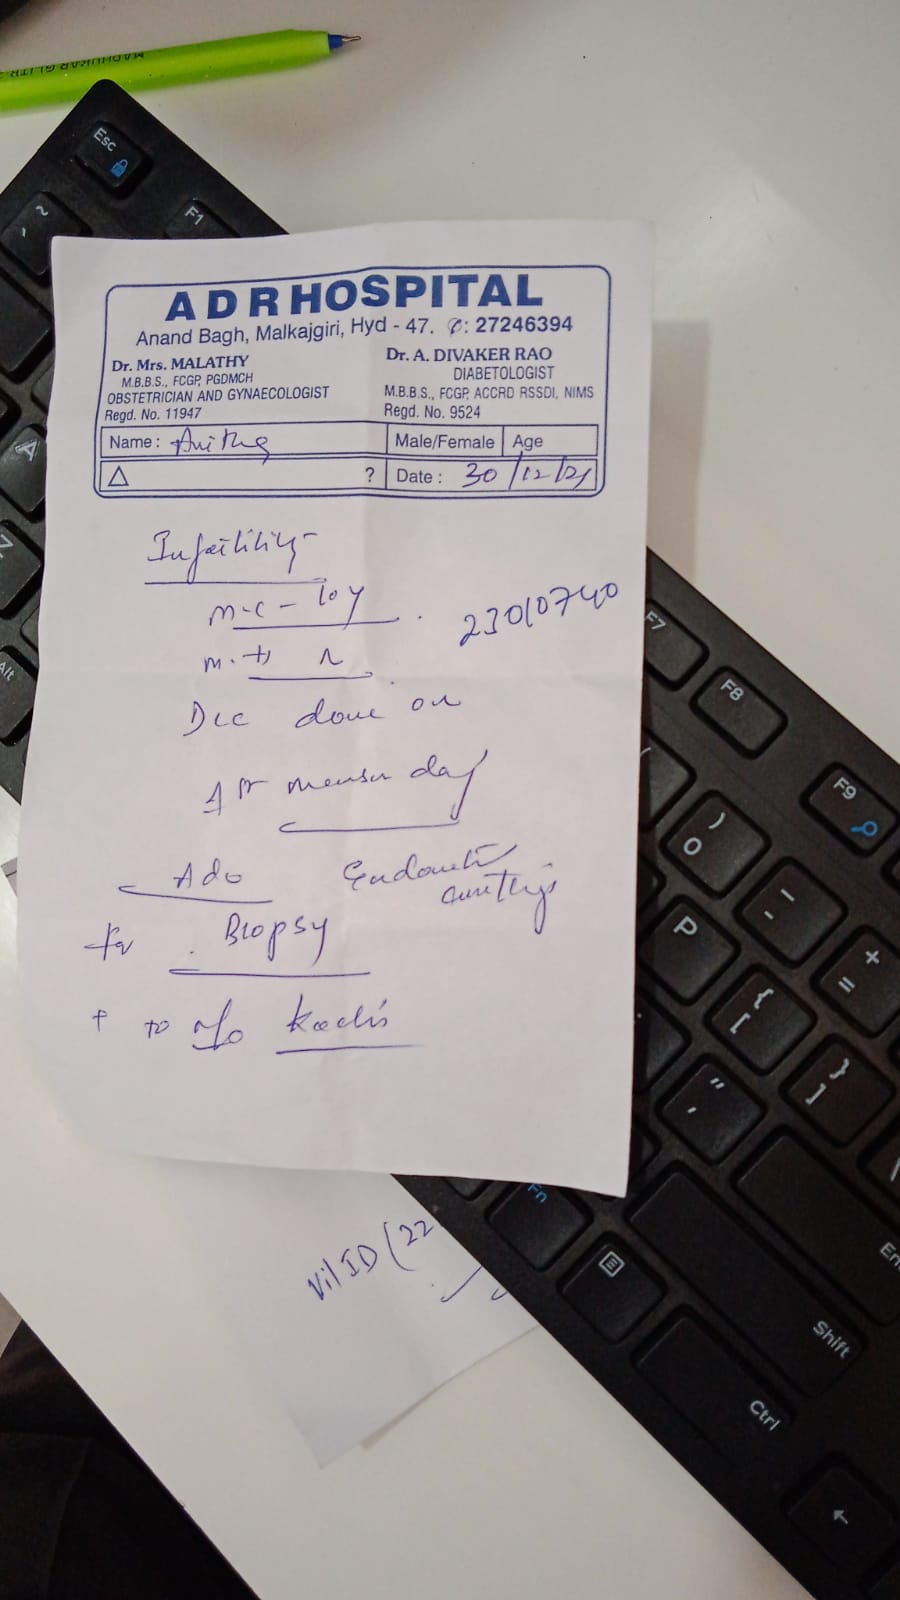 MADHUKAR GLITR
Esc
~
F1
A
Z
Alt
ADR HOSPITAL
Anand Bagh, Malkajgiri, Hyd - 47. ✆: 27246394
Dr. Mrs. MALATHY
M.B.B.S., FCGP, PGDMCH
OBSTETRICIAN AND GYNAECOLOGIST
Regd. No. 11947
Dr. A. DIVAKER RAO
DIABETOLOGIST
M.B.B.S., FCGP, ACCRD RSSDI, NIMS
Regd. No. 9524
Name : Anitha
Male/Female Age
△ ? Date : 30/12/21
Infertility
m.c - 10y
23010740
m.H N
D&C done on
1st mensu day
Ado Endometri
curettings
for Biopsy
+ to r/o Koch's
Vil ID (22
F7
F8
F9
) 0
_ -
+ =
P
{ [
} ]
" '
Fn
Shift
Ctrl